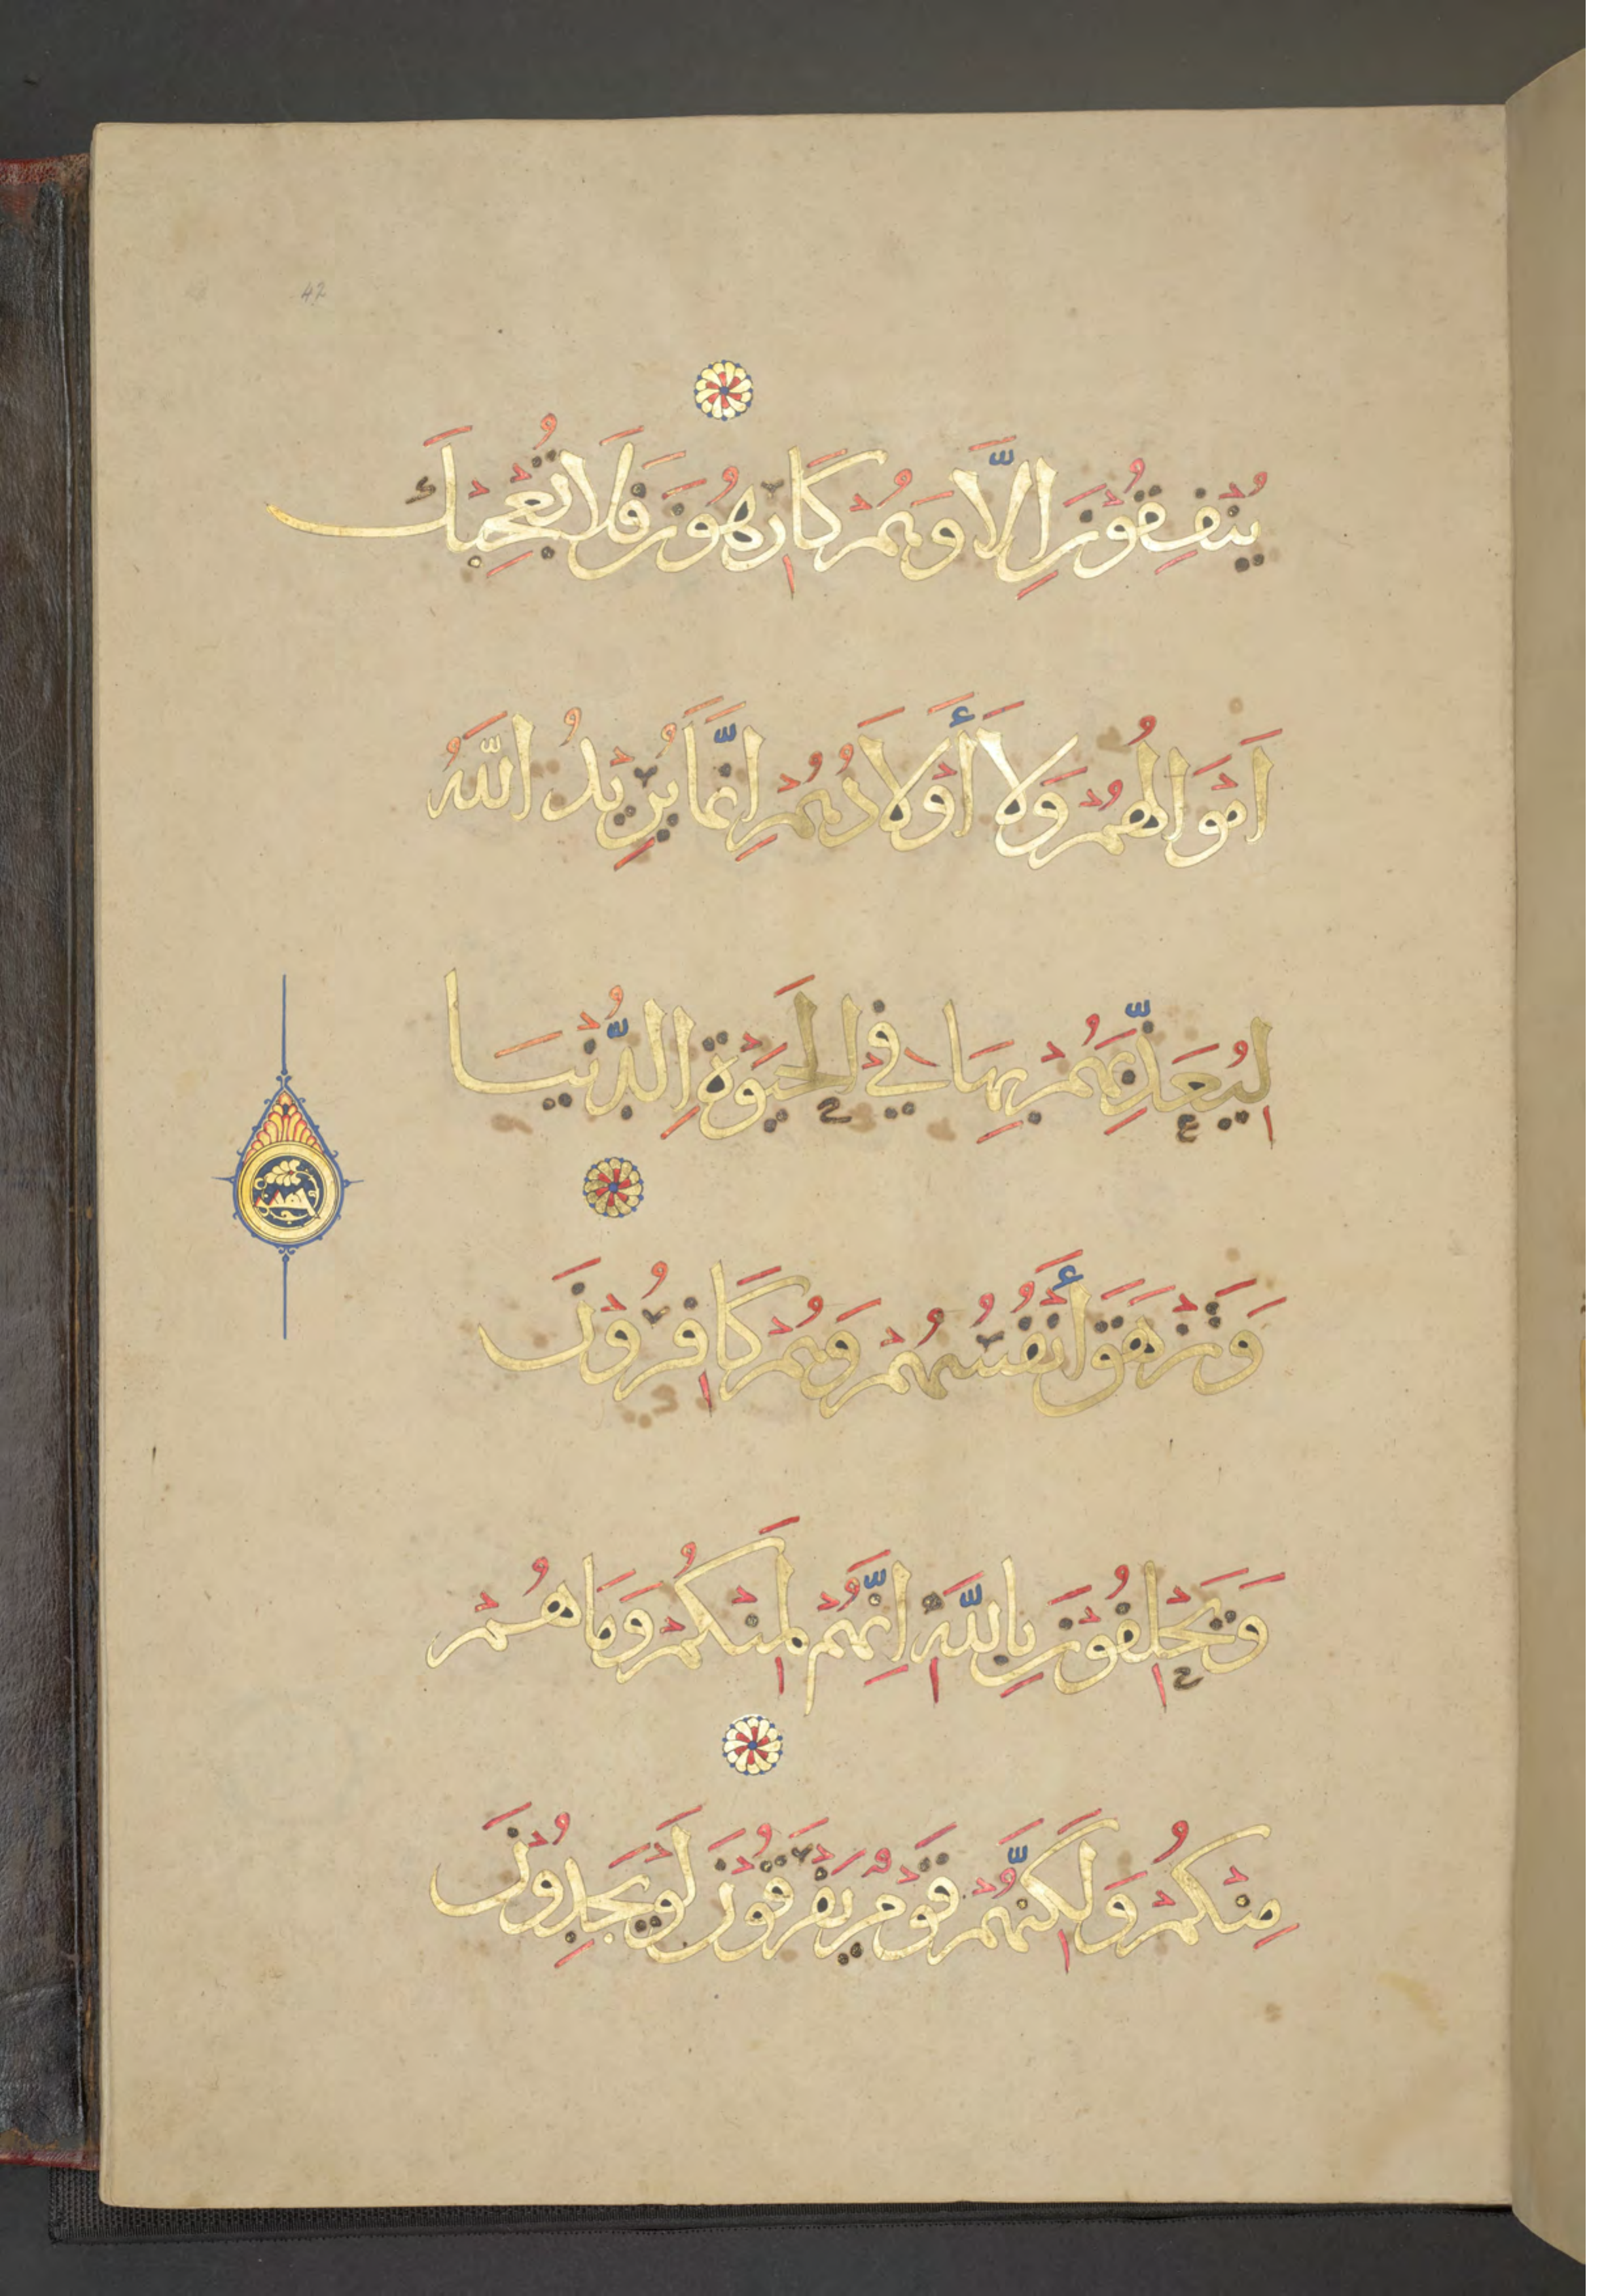 42
يُنْفِقُونَ اِلَّا وَهُمْ كَارِهُونَ فَلَا تُعْجِبْكَ
اَمْوَالُهُمْ وَلَا أَوْلَادُهُمْ اِنَّمَا يُرِيدُ اللّٰهُ
لِيُعَذِّبَهُمْ بِهَا فِي الْحَيٰوةِ الدُّنْيَا
وَتَزْهَقَ أَنْفُسُهُمْ وَهُمْ كَافِرُونَ
وَيَحْلِفُونَ بِاللّٰهِ اِنَّهُمْ لَمِنْكُمْ وَمَا هُمْ
مِنْكُمْ وَلٰكِنَّهُمْ قَوْمٌ يَفْرَقُونَ لَوْ يَجِدُونَ